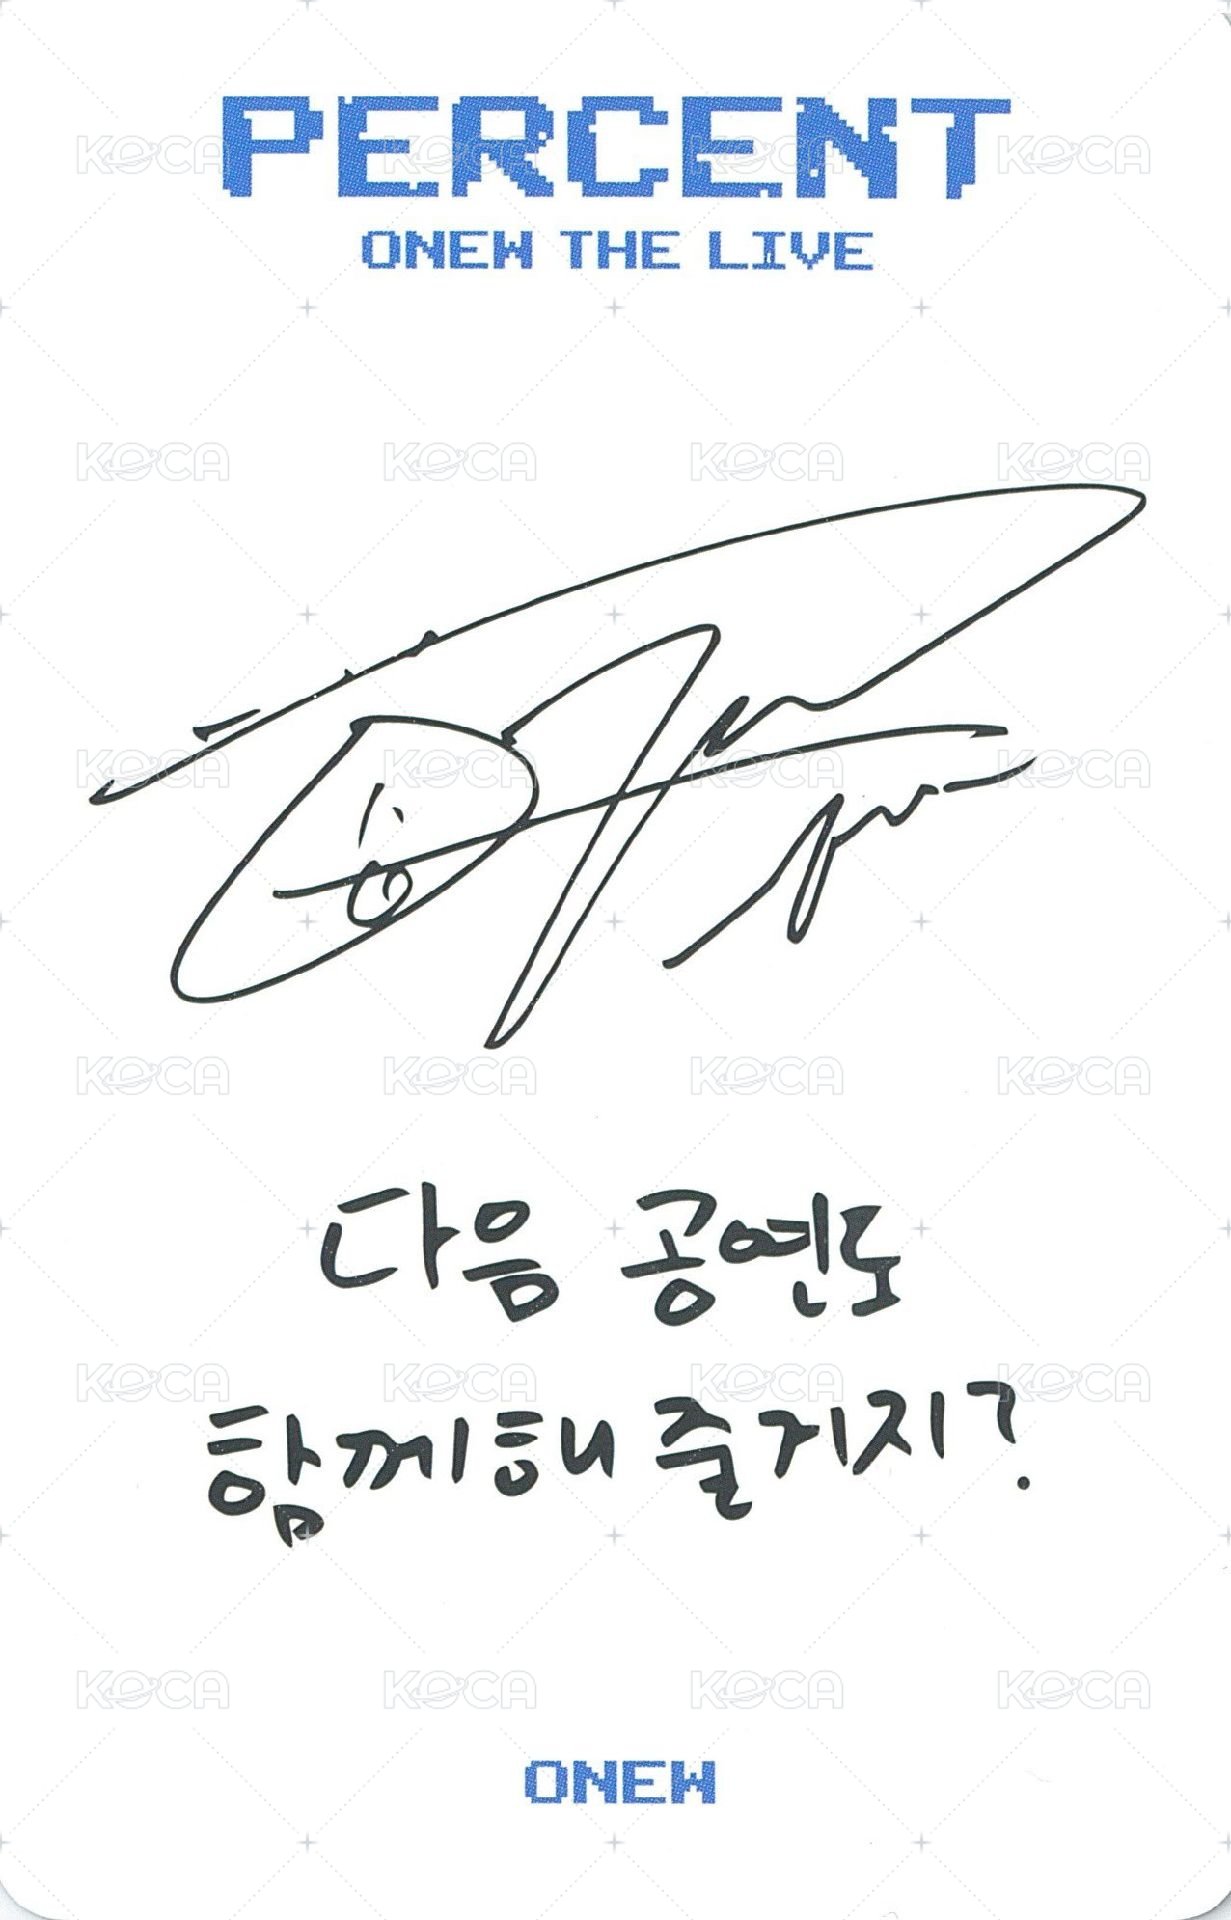 PERCENT
ONEW THE LIVE
다음 공연도
함께해 줄거지?
ONEW
KOCA